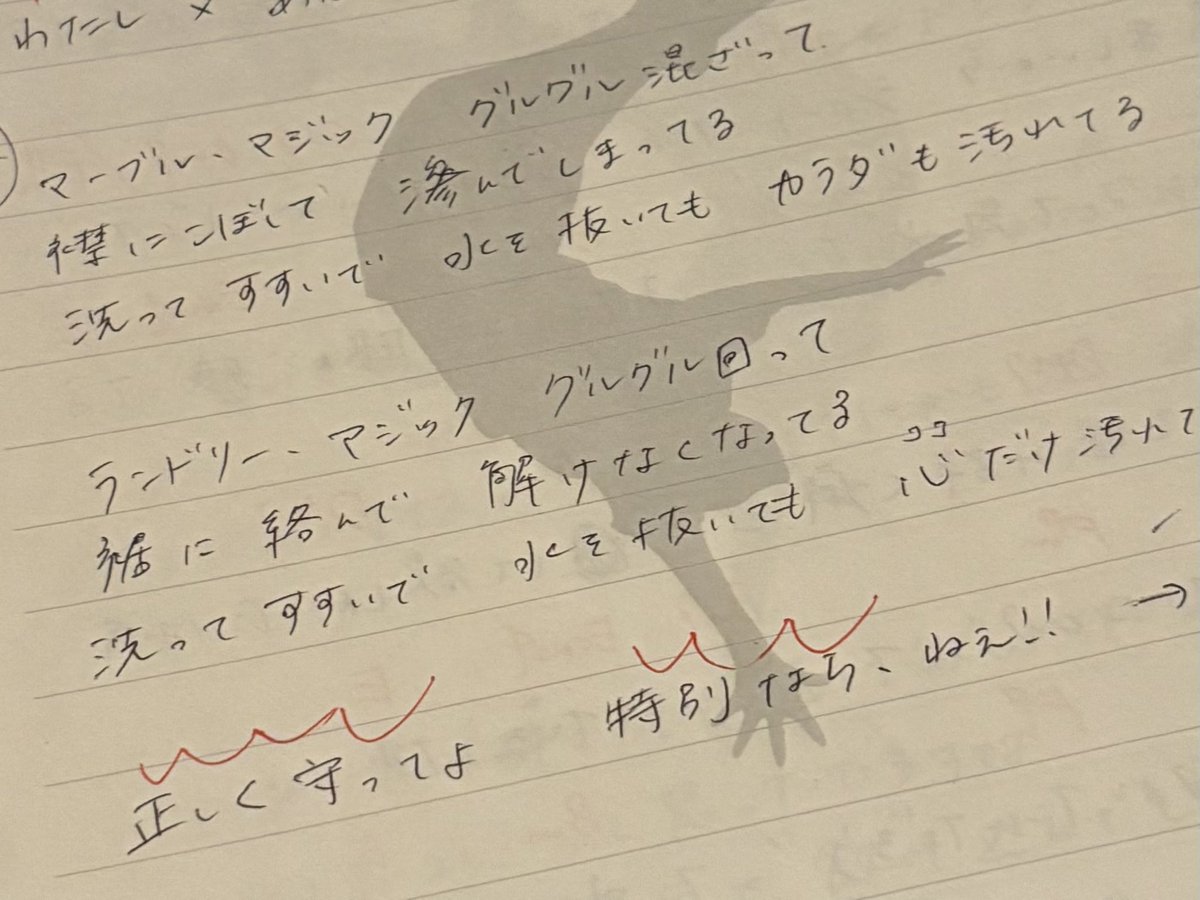 わたし ×
マーブル、マジック グルグル混ざって
襟にこぼして 滲んでしまってる
洗ってすすいで 水を抜いても カラダも汚れてる
ランドリー、マジック グルグル回って
裾に絡んで 解けなくなってる
洗ってすすいで 水を抜いても 心だけ汚れて
ココ
正しく守ってよ 特別なら、ねえ!! →